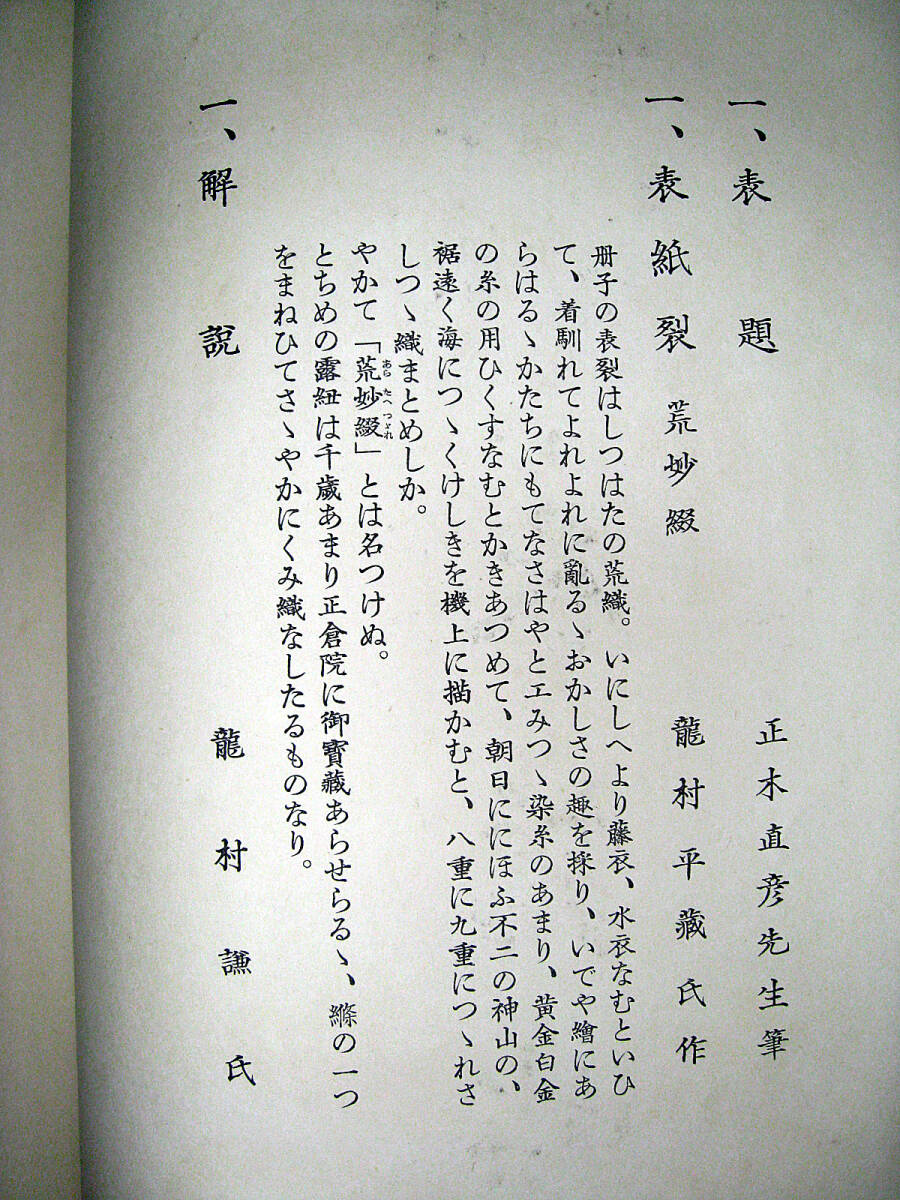 一、表題　正木直彦先生筆
一、表紙裂　荒妙綴　龍村平藏氏作
册子の表裂はしつはたの荒織。いにしへより藤衣、水衣なむといひ
て、着馴れてよれよれに亂るゝおかしさの趣を採り、いでや繪にあ
らはるゝかたちにもてなさはやと工みつゝ染糸のあまり、黃金白金
の糸の用ひくすなむとかきあつめて、朝日ににほふ不二の神山の、
裾遠く海につゝくけしきを機上に描かむと、八重に九重につゝれさ
しつゝ織まとめしか。
やかて「荒妙綴」とは名つけぬ。
あら たへ つゞれ
とちめの露紐は千歲あまり正倉院に御寶藏あらせらるゝ、縧の一つ
をまねひてさゝやかにくみ織なしたるものなり。
一、解說　龍村謙氏